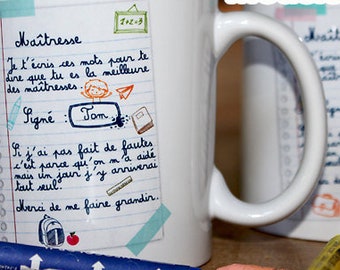 1+2=3
Maîtresse
Je t'écris ces mots pour te
dire que tu es la meilleure
des maîtresses
Signé Tom
Si j'ai pas fait de fautes
c'est parce qu'on m'a aidé
mais un jour j'y arriverai
tout seul.
Merci de me faire grandir.